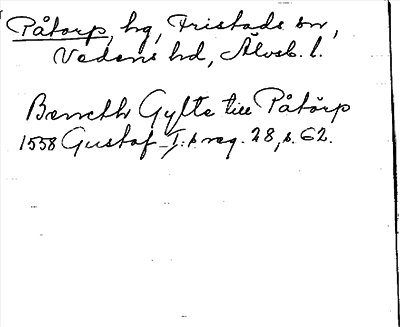 Påtorp, hg, Fristads sn,
Vedens hd, Älvsb. l.
Bencth Gyfte till Påtörp
1558 Gustaf I:s reg. 28, s. 62.